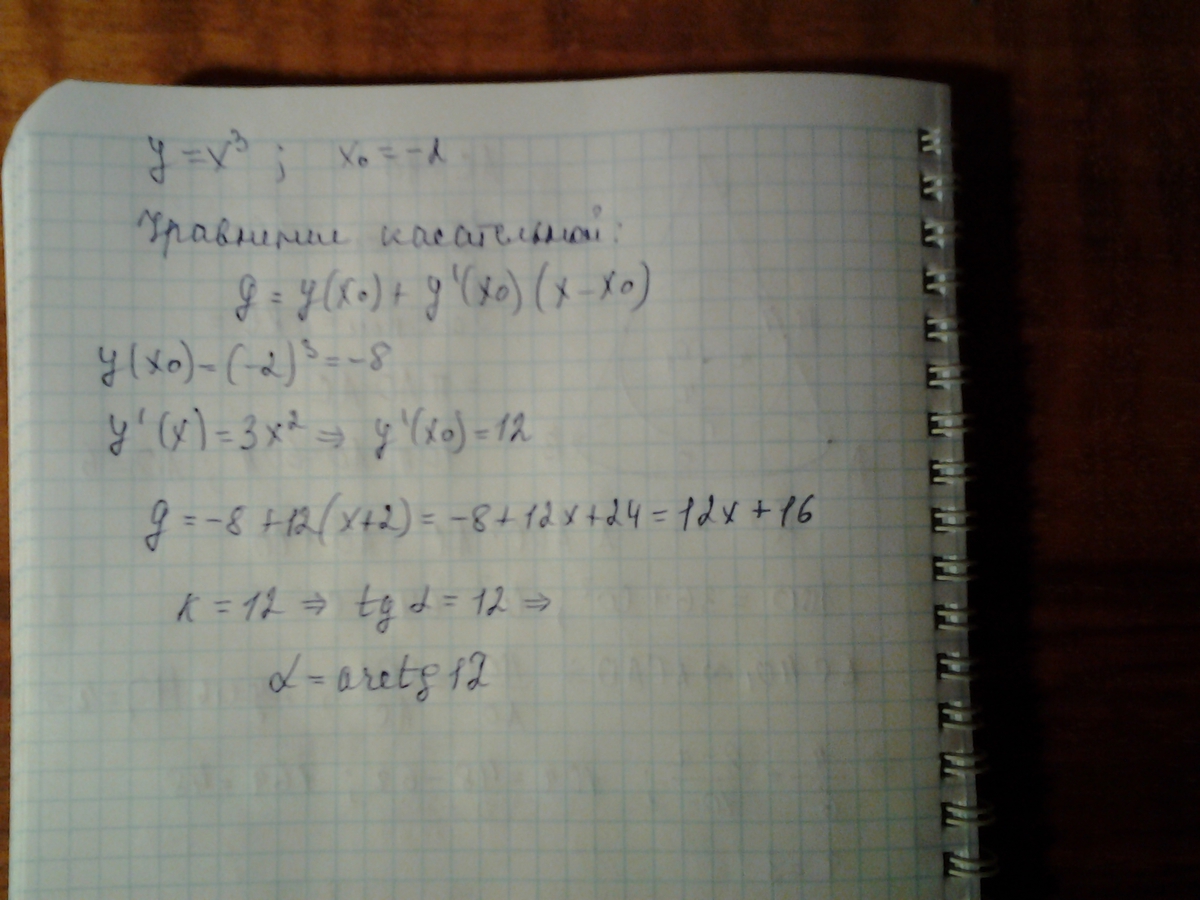 y = x³ ; x₀ = -2
Уравнение касательной:
y = y(x₀) + y'(x₀)(x - x₀)
y(x₀) = (-2)³ = -8
y'(x) = 3x² ⇒ y'(x₀) = 12
y = -8 + 12(x+2) = -8 + 12x + 24 = 12x + 16
k = 12 ⇒ tg α = 12 ⇒
α = arctg 12